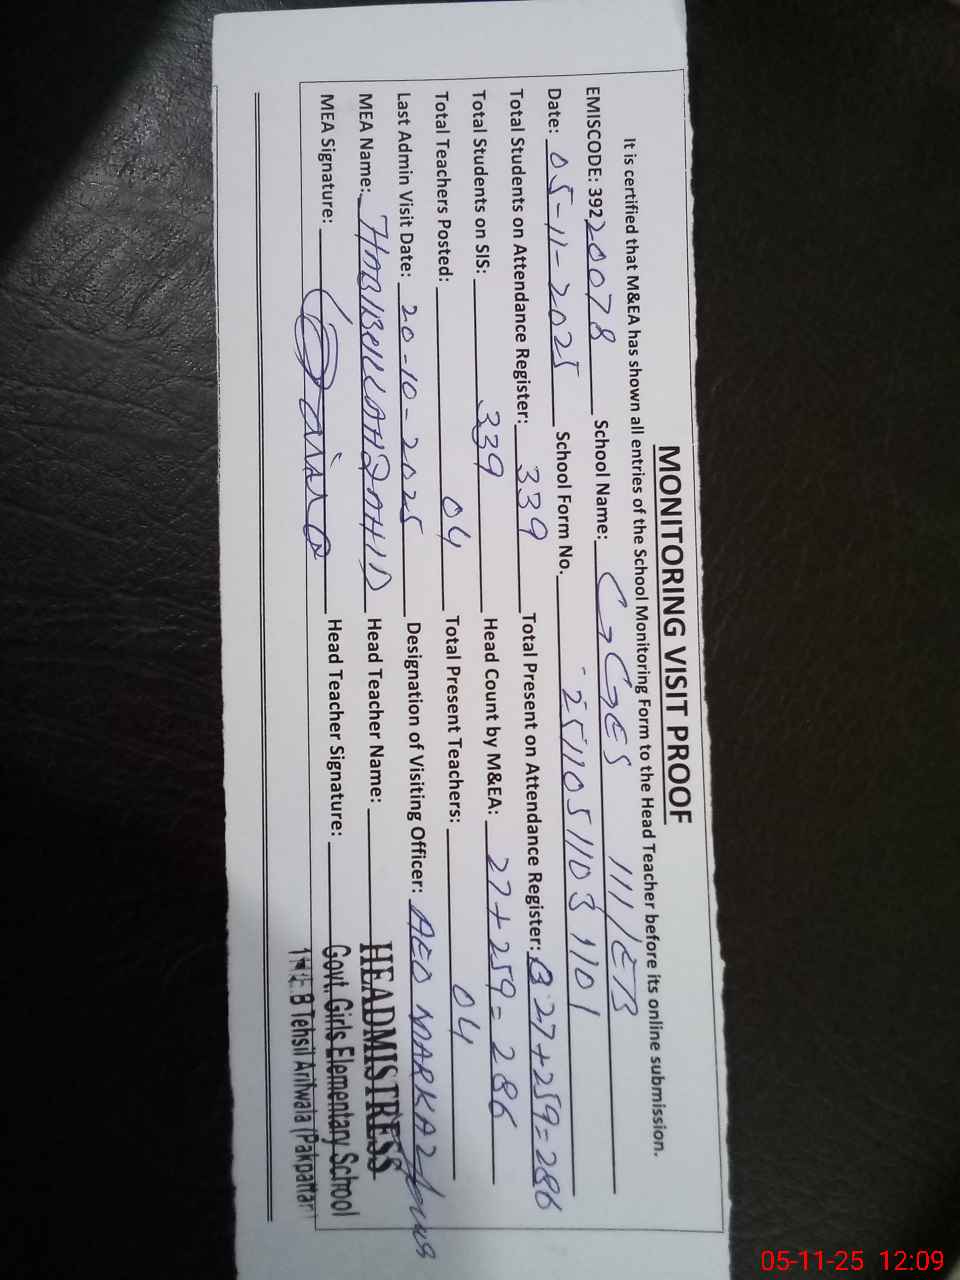 MONITORING VISIT PROOF
It is certified that M&EA has shown all entries of the School Monitoring Form to the Head Teacher before its online submission.
EMISCODE: 39220078 School Name: GGES 111/EB
Date: 05-11-2025 School Form No. 2511051103 1101
Total Students on Attendance Register: 339 Total Present on Attendance Register: 27+259=286
Total Students on SIS: 339 Head Count by M&EA: 27+259=286
Total Teachers Posted: 04 Total Present Teachers: 04
Last Admin Visit Date: 20-10-2025 Designation of Visiting Officer: AEO MARKAZ
MEA Name: HABIBULLAH ZAHID Head Teacher Name:
MEA Signature: Head Teacher Signature:
HEADMISTRESS
Govt. Girls Elementary School
B Tehsil Arifwala (Pakpattan)
05-11-25 12:09